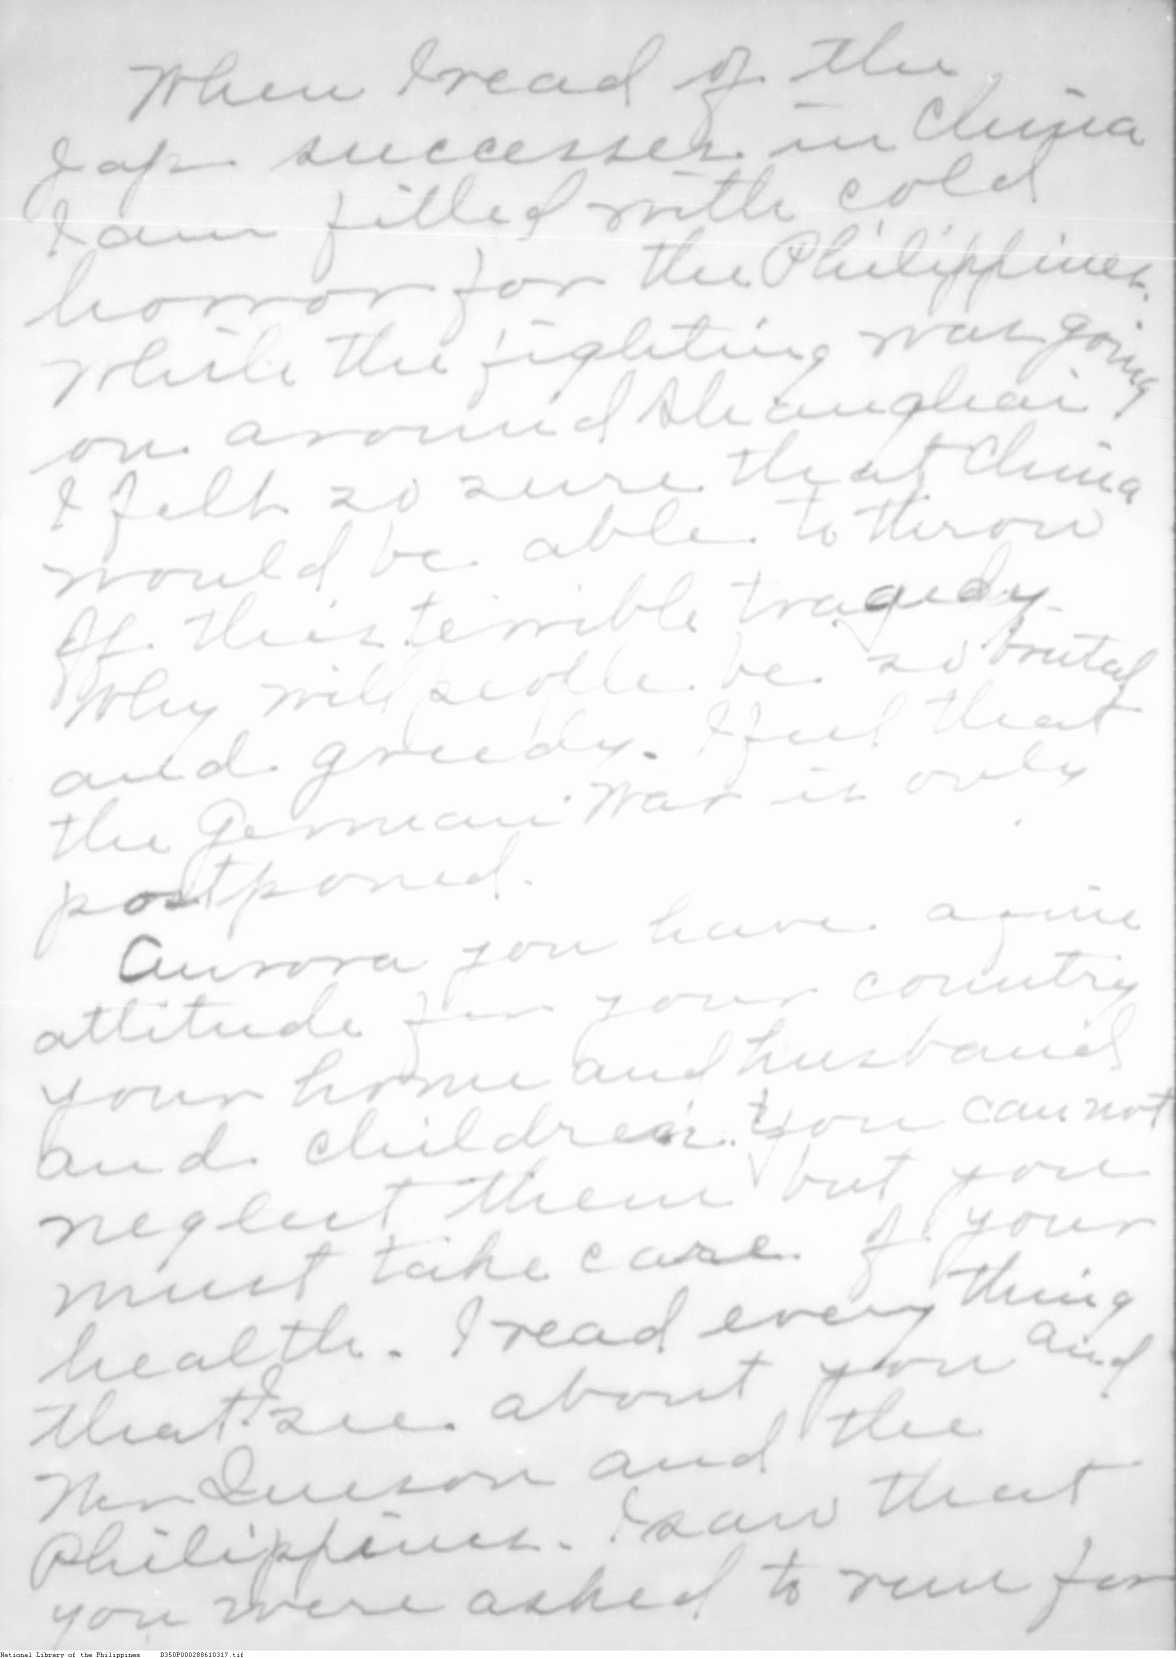 When I read of the
Jap successes in China
I am filled with cold
horror for the Philippines.
While the fighting was going
on around Shanghai
I felt so sure that China
would be able to throw
off this terrible tragedy.
Why will people be so brutal
and greedy. I feel that
the German War is only
postponed.
Aurora you have a fine
attitude for your country
your home and husband
and children. You can not
neglect them but you
must take care of your
health. I read every thing
that I see about you and
Mr Quezon and the
Philippines. I saw that
you were asked to run for
National Library of the Philippines D350P000288610317.tif